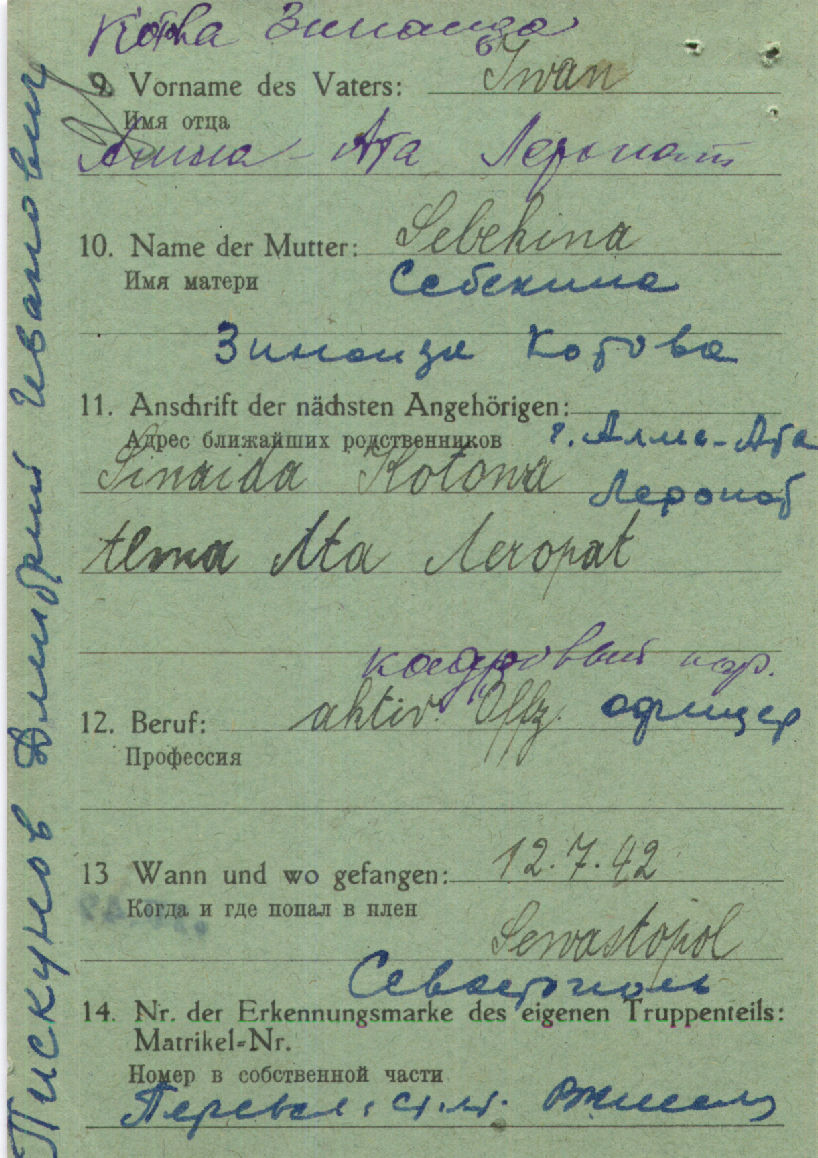 Котва Зинаида
9. Vorname des Vaters: Iwan
Имя отца
Алма-Ата Леропат
10. Name der Mutter: Sebekina
Имя матери Себекина
Зинаида Котова
11. Anschrift der nächsten Angehörigen:
Адрес ближайших родственников г. Алма-Ата
Sinaida Kotowa Леропат
Alma Ata Aeropat
кадровый
12. Beruf: aktiv. Offz. офицер
Профессия
13 Wann und wo gefangen: 12.7.42
Когда и где попал в плен
Sewastopol
Севастополь
14. Nr. der Erkennungsmarke des eigenen Truppenteils:
Matrikel-Nr.
Номер в собственной части
Перевел: ст. лт.
Пискунов Дмитрий Иванович